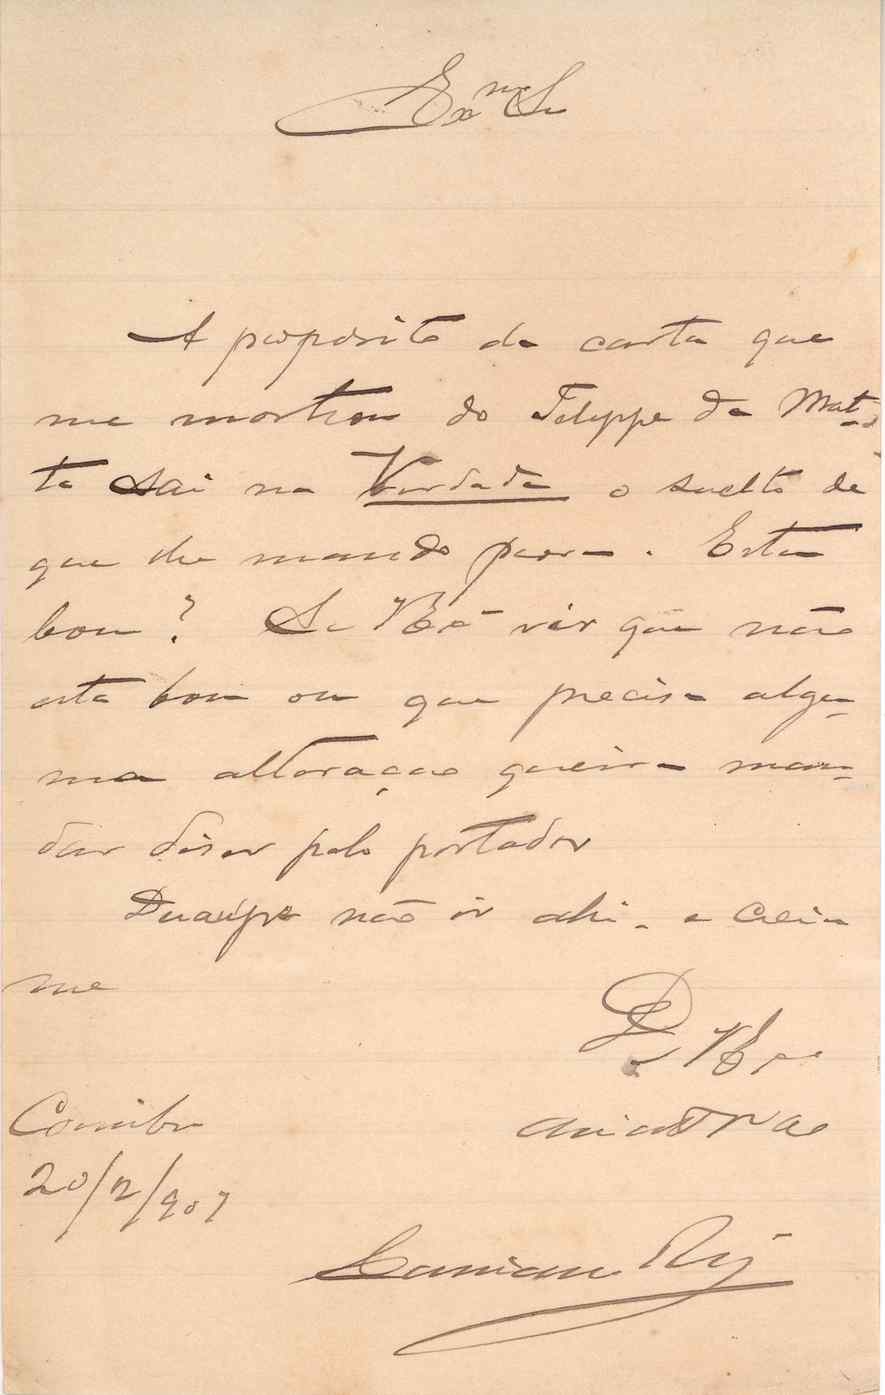 Exmo Sr
A proposito da carta que
me mostrou do Felippe da Mat-
ta sai na Verdade o suelto de
que lhe mando prova. Está
bom? Se V Exa vir que não
está bom ou que precisa algu-
ma alteração queira man-
dar diser pelo portador
não ir ahi. e creia
me
De V Exa
Coimbra
20/2/907